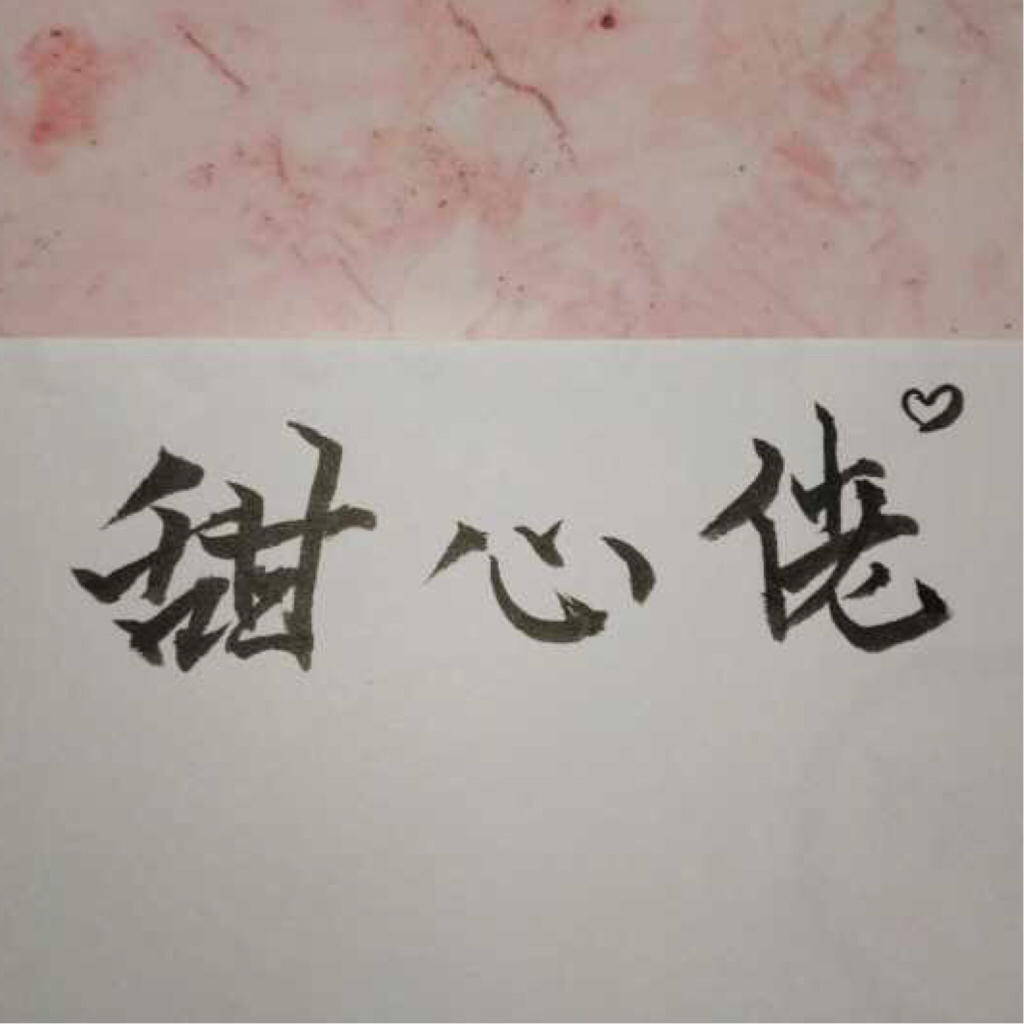 甜心佬